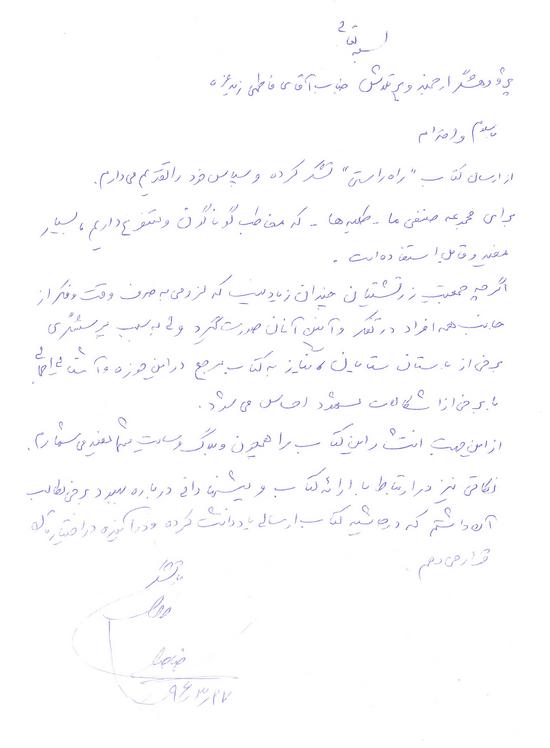 بسمه تعالی
پژوهشگر ارجمند و پرتلاش جناب آقای فاطمی
باسلام و احترام
از ارسال کتاب "راه راستی" تشکر کرده و سپاس خود را تقدیم می‌دارم.
برای مجموعه صنفی ما - طلبه‌ها - که مخاطب گوناگون و متنوع داریم، بسیار
مفید و قابل استفاده است.
اگرچه جمعیت زرتشتیان چندان زیاد نیست که لزومی به صرف وقت و فکر از
جانب همه افراد در تفکر و آئین آنان صورت گیرد ولی به سبب پرسشگری
برخی از باستان ستایان نیاز به کتاب مرجع در این حوزه و آشنائی اجمالی
با برخی از اشکالات مسموع احساس می‌شود.
از این جهت انتشار این کتاب را همچون وبلاگ و سایت شما مفید می‌شمارم.
نکاتی نیز در ارتباط با ارائه کتاب و پیشنهاداتی درباره بهبود برخی مطالب
آن داشتم که در حاشیه کتاب ارسالی یادداشت کرده و در اختیارتان
قرار می‌دهم.
باتشکر